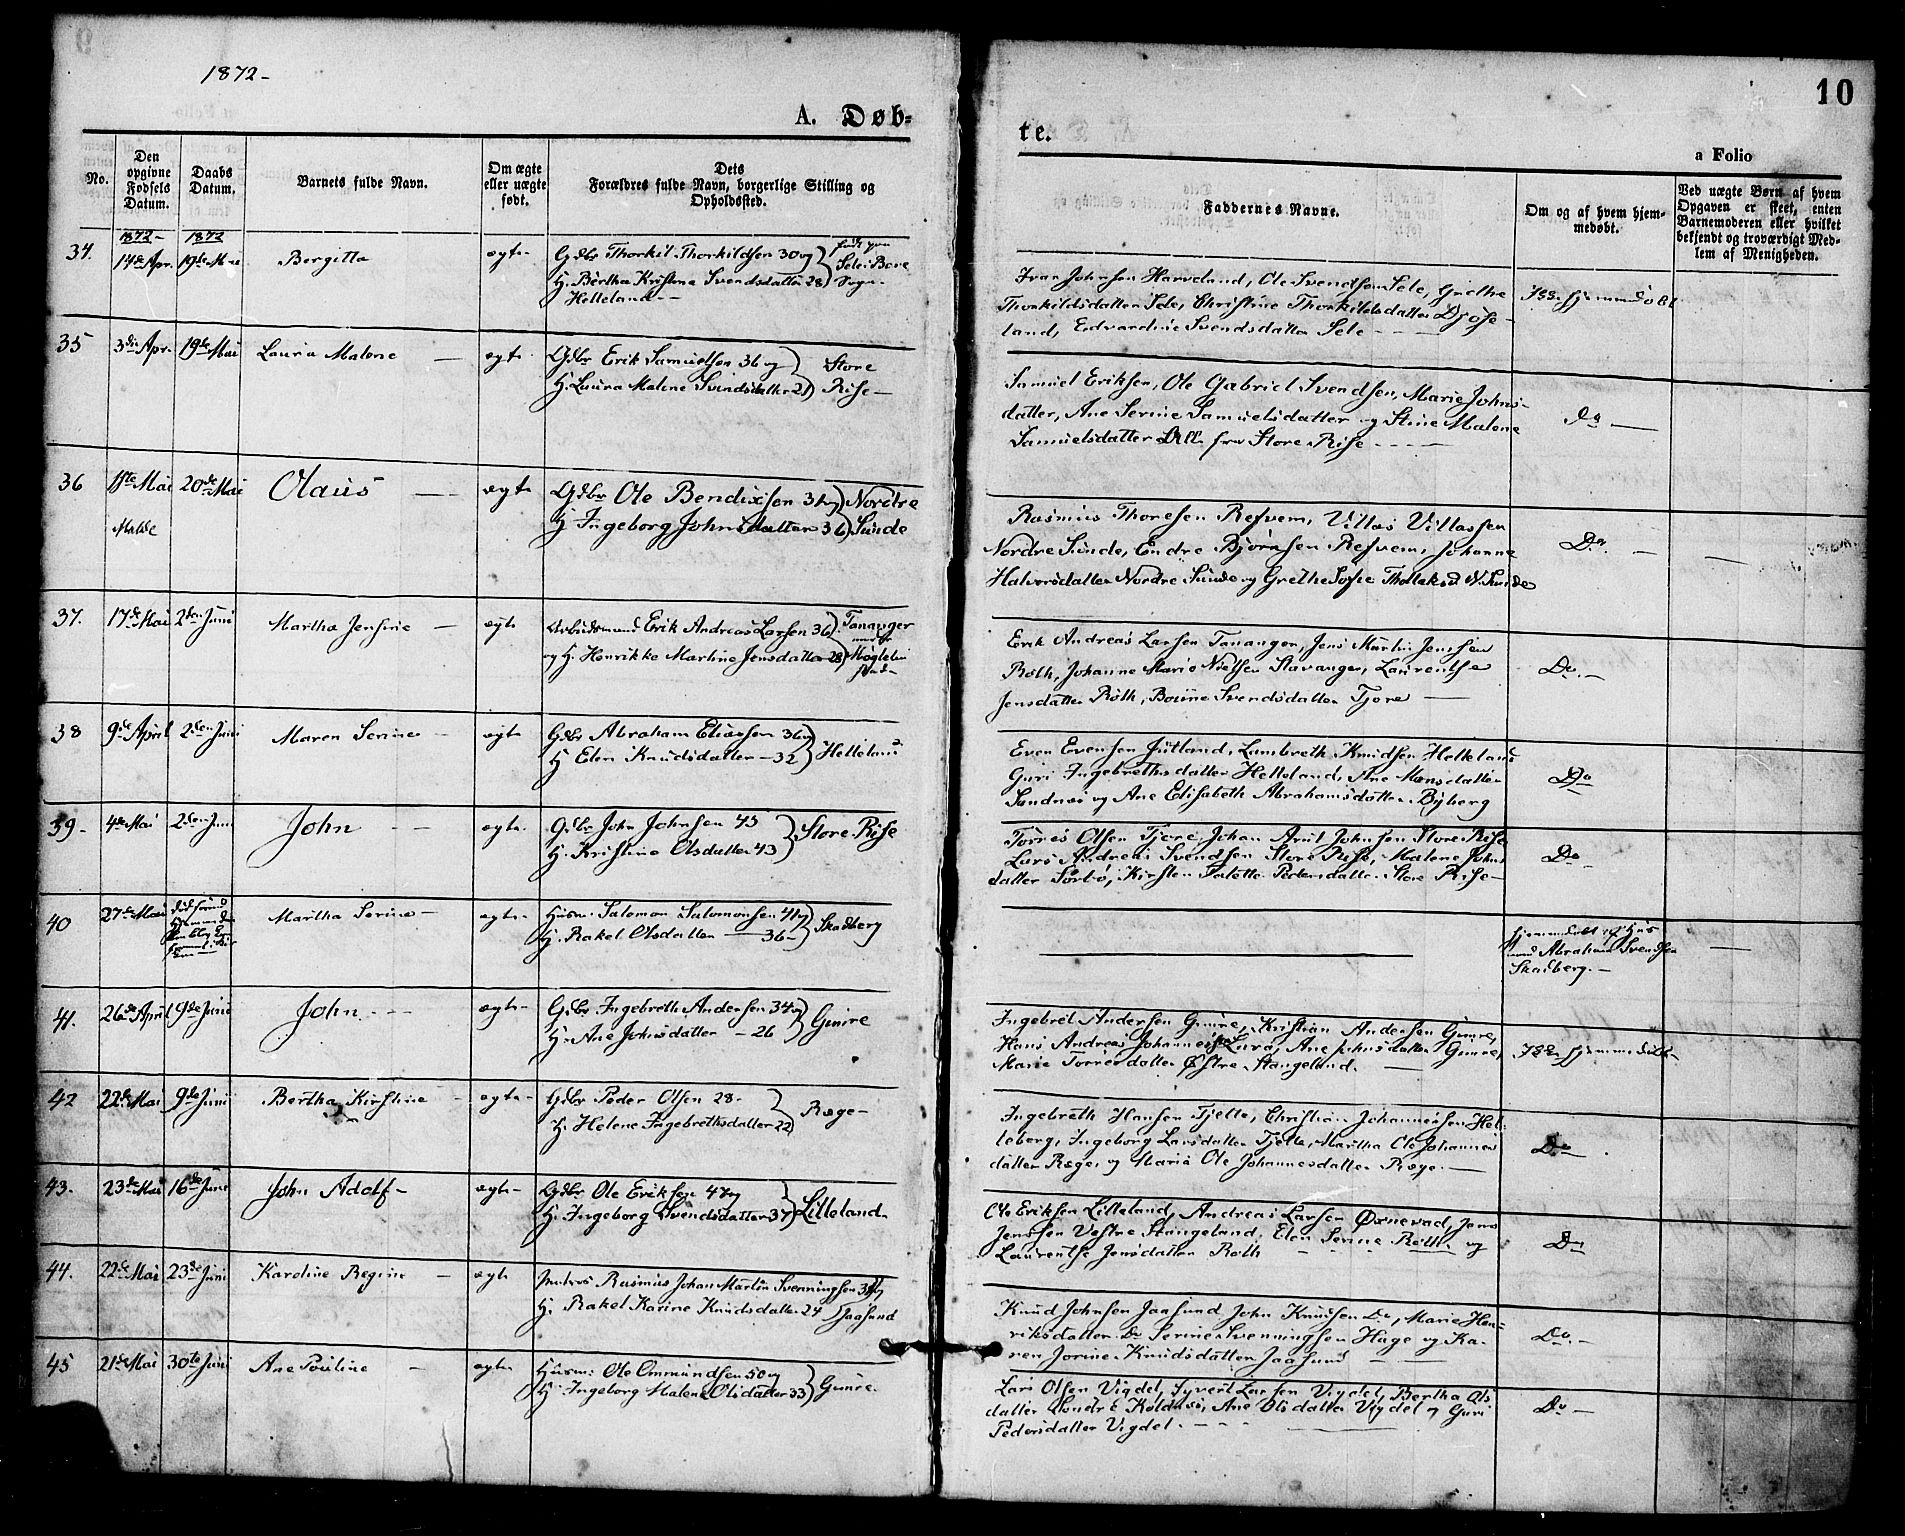 1872-
A. Døb-
te.
10
a Folio
No.
Den
opgivne
Fødsels
Datum.
Daabs
Datum.
Barnets fulde Navn.
Om ægte
eller uægte
født.
Dets
Forældres fulde Navn, borgerlige Stilling og
Opholdssted.
Faddernes Navne.
Om og af hvem hjem-
medøbt.
Ved uægte Børn af hvem
Opgaven er skeet, enten
Barnemoderen eller hvilket
bekjendt og troværdigt Med-
lem af Menigheden.
1872- 1872
34. 14de Apr. 19de Mai Bergitta ægte Gdbr Thorkil Thorkildsen 30 og
H. Bertha Kristine Svendsdatter 28 Sele i Bore
Helleland -- Sogn-
Ivar Johnsen Harveland, Ole Svendsen Sele, Grethe
Thorkildsdatter Sele, Christine Thorkildsdatter
land, Edvardine Svendsdatter Sele
Ikke hjemmedøbt
35 3die Apr. 19de Mai Laura Malene ægte Gdbr Erik Samuelsen 36 og Store
H. Laura Malene Svendsdatter 21 Rise-
Samuel Eriksen, Ole Gabriel Svendsen, Marie Johns-
datter, Ane Serine Samuelsdatter og Stine Malene
Samuelsdatter Alle fra Store Rise
do
36 1ste Mai 20de Mai Olaus ægte Gdbr Ole Bendixsen 34 og Nordre
H. Ingeborg Johnsdatter 36 Sunde
Rasmus Thoresen Refvem, Villas Villassen
Nordre Sunde, Endre Bjørnsen Refvem, Johanne
Halvorsdatter Nordre Sunde og Grethe Sofie N. Sunde
Do.
37. 17de Mai 2den Juni Martha Jensine ægte Arbeidsmand Erik Andreas Larsen 36 Tananger
og H. Henrikke Martine Jensdatter 28
Erik Andreas Larsen Tananger, Jens Martin Jensen
Røth, Johanne Marie Nielsen Stavanger, Laurentse
Jensdatter Røth, Svendsdatter Tjore
Do.
38 9de April 2den Juni Maren Serine ægte Gdbr Abraham Eliassen 36 og
H Elen Knudsdatter - 32 Helleland
Even Evensen Jutland, Lambreth Knudsen Helleland
Guri Ingebrethsdatter Helleland, Ane Mansdatter
Sandnæs og Ane Elisabeth Abrahamsdatter Byberg
Do
39- 4de Mai 2den Juni John ægte Gdbr John Johnsen 45
H. Kristine Olsdatter 43 Store Rise
Torres Olsen Tjore, Johan Arnt Johnsen Store Rise
Lars Andreas Svendsen Store Rise, Malene Johns
datter Sørbø, Kirsten Pedersdatter Store Rise-
Do
40 27de Mai Martha Serine- ægte- Husm. Salomon Salomonsen 41 og
H. Rakel Olsdatter 36- Skadberg
hjemmedøbt af Hus
mand Abraham Svendsen
Skadberg.-
41. 26de April 9de Juni John ægte- Gdbr Ingebreth Andersen 34 og
H. Ane Johnsdatter - 26 Gimre
Ingebret Andersen Gimre, Kristian Andersen Gimre,
Hans Andreas Johannessen Lura, Ane Johnsdatter Gimre,
Marie Torresdatter Østre Stangeland.
Ikke hjemmedøbt-
42 22de Mai 9de Juni Bertha Kirstine ægte- Gdbr Peder Olsen 28-
H. Helene Ingebrethsdatter 22 Ræge-
Ingebreth Hansen Tjelta, Christian Johannessen Hel-
leberg, Ingeborg Larsdatter Tjelta, Martha Ole Johannes
datter Ræge, og Maria Ole Johannesdatter Ræge.
Do
43. 23de Mai 16de Juni John Adolf- ægte- Gdbr Ole Eriksen 47 og
H. Ingeborg Svendsdatter 37 Lilleland
Ole Eriksen Lilleland, Andreas Larsen Øxnevad, Jens
Jenssen Vestre Stangeland, Elen Serine Røth og
Laurentse Jensdatter Røth
Do
44. 22de Mai 23de Juni Karoline Regine ægte Rasmus Johan Martin Svenningsen
H. Rakel Karine Knudsdatter 24 Jaasund
Knud Johnsen Jaasund, John Knudsen Do, Marie Hen-
riksdatter Do Serine Svenningsen Hage og Ka-
ren Jorine Knudsdatter Jaasund
Do.-
45 21de Mai 30te Juni Ane Pouline ægte Husm: Ole Ommundsen 50 og
H. Ingeborg Malene Olsdatter 33 Gimre.
Lars Olsen Vigdel, Syvert Larsen Vigdel, Bertha Ols
datter Søndre Kolnæs, Ane Olsdatter Vigdel og Guri
Pedersdatter Vigdel.
Do -